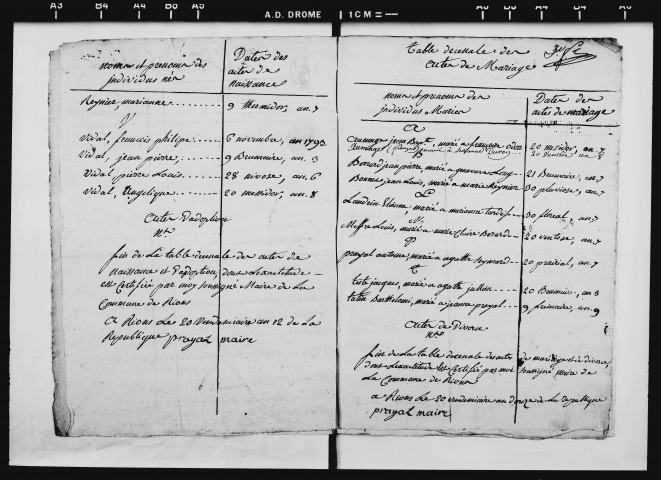 A3 B4 A4 B5 A5
A.D. DROME 1CM =
A5 B5 A4 B4 A3
noms et prenoms des
individus nés
Dates des
actes de
naissance
Reynier, marianne 9 thermidor, an 7
V
Vidal, francois philipe 6 novembre, an 1793
Vidal, jean pierre, 9 Brumaire, an 3
Vidal pierre Louis 28 nivose, an 6
Vidal, angelique 20 messidor, an 8
actes d'adoption
Nt.
fin de la table decenale des actes de
Naissance et d'adoption, dont l'exactitude
est Certifiée par moy soussigné Maire de la
Commune de Rions
a Rions le 20 vendemiaire an 12 de la
Republique prayal maire
Table decenale des
actes de Mariage
noms et prenoms des
individus Mariés
Dates des
actes de mariage
A
jean Bapt. marié a francoise 20 messidor, an 7
B
Bonard jean pierre, marié a 21 Brumaire, an 7
Bonnet jean Louis, marié a marie Reynier 30 pluviose, an 7
L
Landrin Etienne, marié a marianne 30 floreal, an 7
M
Meffre Louis, marié a marie Claire Bonard 20 ventose, an 7
P
prayal antoine, marié a agathe aymard 20 prairial, an 7
T
teste jacques, marié a agathe 20 Brumaire, an 8
Barthelemi, marié a jeanne prayal 9 frimaire, an 9
actes de Divorce
Nt.
fin de la table decenale des actes de mariage et de divorce,
dont l'exactitude est Certifiée par moi soussigné, maire de
la Commune de Rions
a Rions le 20 vendemiaire an douze de la republique
prayal maire